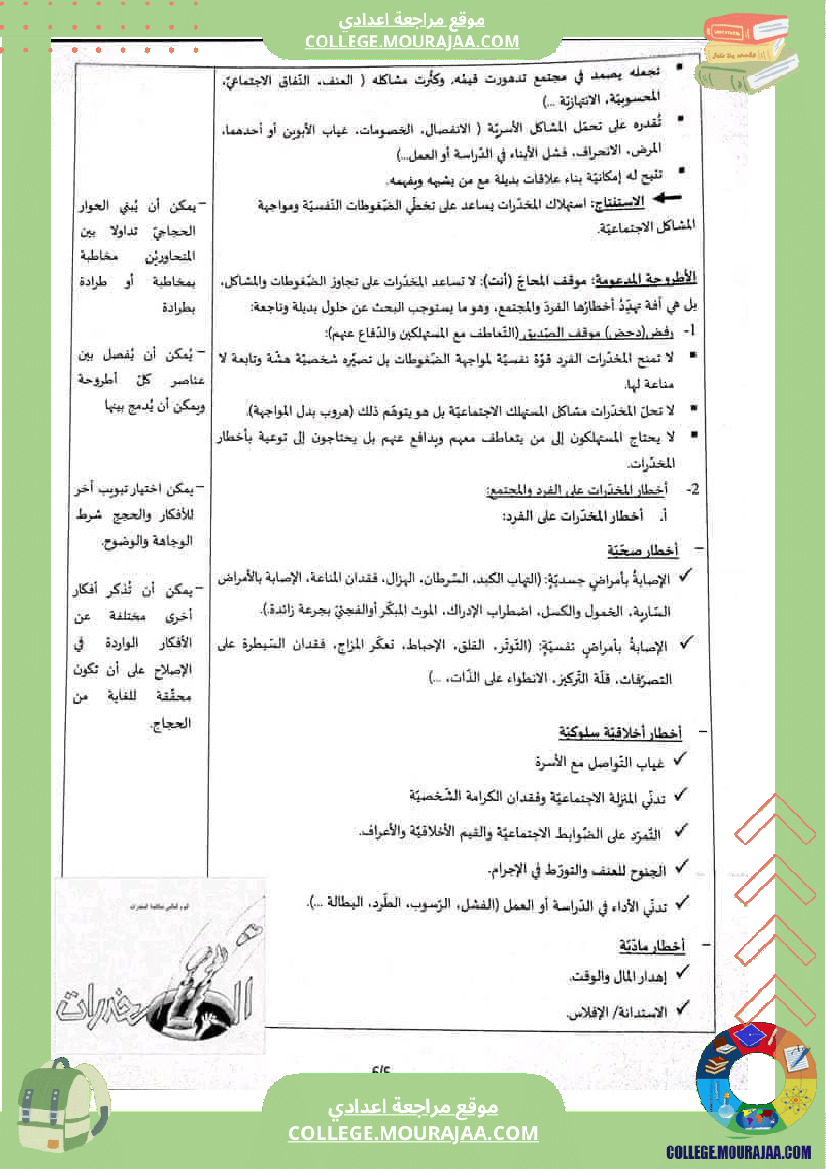 موقع مراجعة اعدادي
COLLEGE.MOURAJAA.COM
▪ تجعله يصمد في مجتمع تدهورت قيمُه, وكثُرت مشاكله ( العنف، النّفاق الاجتماعيّ،
المحسوبيّة، الانتهازيّة ...)
▪ تُقدره على تحمّل المشاكل الأسريّة ( الانفصال، الخصومات، غياب الأبوين أو أحدهما،
المرض، الانحراف، فشل الأبناء في الدّراسة أو العمل...)
▪ تتيح له إمكانيّة بناء علاقات بديلة مع من يشبهه ويفهمه.
الاستنتاج: استهلاك المخدّرات يساعد على تخطّي الضّغوطات النّفسيّة ومواجهة
المشاكل الاجتماعيّة.
الأطروحة المدعومة: موقف المحاجّ (أنت): لا تساعد المخدّرات على تجاوز الضّغوطات والمشاكل،
بل هي آفة تهدّدُ أخطارُها الفردَ والمجتمع، وهو ما يستوجب البحث عن حلول بديلة وناجعة:
1- رفض(دحض) موقف الصّديق (التّعاطف مع المستهلكين والدّفاع عنهم):
▪ لا تمنح المخدّرات الفرد قوّة نفسيّة لمواجهة الضّغوطات بل تصيّره شخصيّة هشّة وتابعة لا
مناعة لها.
▪ لا تحلّ المخدّرات مشاكل المستهلك الاجتماعيّة بل هو يتوهّم ذلك (هروب بدل المواجهة).
▪ لا يحتاج المستهلكون إلى من يتعاطف معهم ويدافع عنهم بل يحتاجون إلى توعية بأخطار
المخدّرات.
2- أخطار المخدّرات على الفرد والمجتمع:
أ. أخطار المخدّرات على الفرد:
– أخطار صحّيّة
✓ الإصابةُ بأمراضٍ جسديّةٍ: (التهاب الكبد، السّرطان، الهزال، فقدان المناعة، الإصابة بالأمراض
السّارية، الخمول والكسل، اضطراب الإدراك، الموت المبكّر أوالفجئيّ بجرعة زائدة.).
✓ الإصابةُ بأمراضٍ نفسيّةٍ: (التّوتّر، القلق، الإحباط، تعكّر المزاج، فقدان السّيطرة على
التصرّفات، قلّة التّركيز، الانطواء على الذّات، ...)
– أخطار أخلاقيّة سلوكيّة
✓ غياب التّواصل مع الأسرة
✓ تدنّي المنزلة الاجتماعيّة وفقدان الكرامة الشّخصيّة
✓ التّمرّد على الضّوابط الاجتماعيّة والقيم الأخلاقيّة والأعراف.
✓ الجنوح للعنف والتورّط في الإجرام.
✓ تدنّي الأداء في الدّراسة أو العمل (الفشل، الرّسوب، الطّرد، البطالة ...).
– أخطار مادّيّة
✓ إهدار المال والوقت.
✓ الاستدانة/ الإفلاس.
– يمكن أن يُبنى الحوار
الحجاجيّ تداولا بين
المتحاورَيْن مخاطبة
بمخاطبة أو طرادة
بطرادة
– يُمكن أن يُفصل بين
عناصر كلّ أطروحة
ويمكن أن يُدمج بينها
– يمكن اختيار تبويب آخر
للأفكار والحجج شرط
الوجاهة والوضوح.
– يمكن أن تُذكر أفكار
أخرى مختلفة عن
الأفكار الواردة في
الإصلاح على أن تكون
محقّقة للغاية من
الحجاج.
المخدرات
موقع مراجعة اعدادي
COLLEGE.MOURAJAA.COM
COLLEGE.MOURAJAA.COM